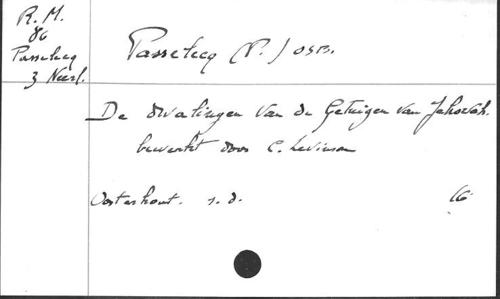 R. M.
86
Passelecq
3 Neerl.
Passelecq (P.) OSB.
De dwalingen van de Getuigen van Jehovah.
bewerkt door C. Levinson
Oosterhout. s. d.
16°